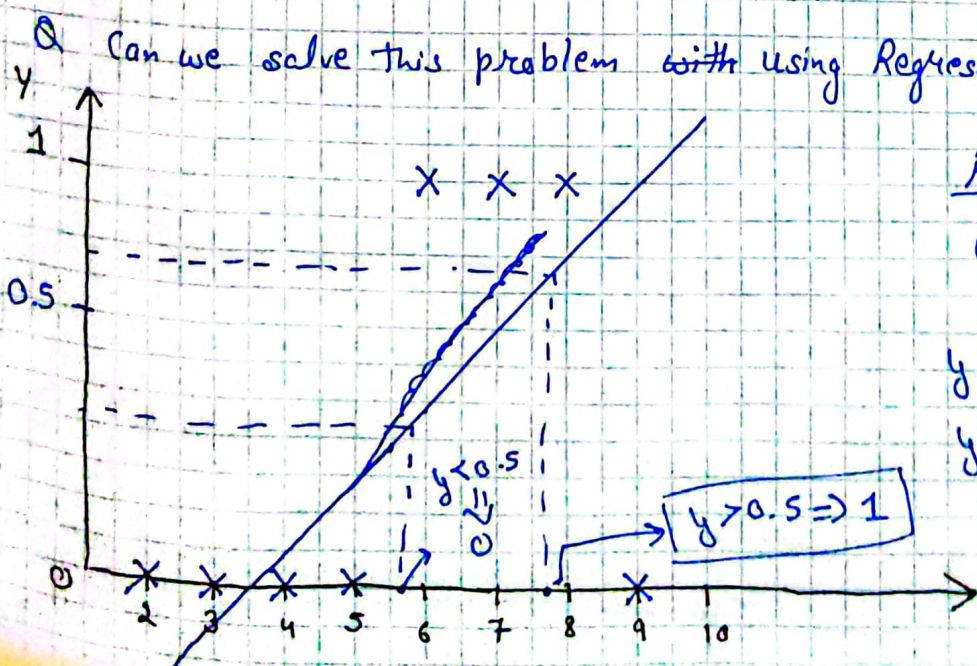 Q Can we solve this problem with using Regres
Y
1
0.5
y
y<0.5
⇓
0
y
y>0.5 => 1
0
2 3 4 5 6 7 8 9 10